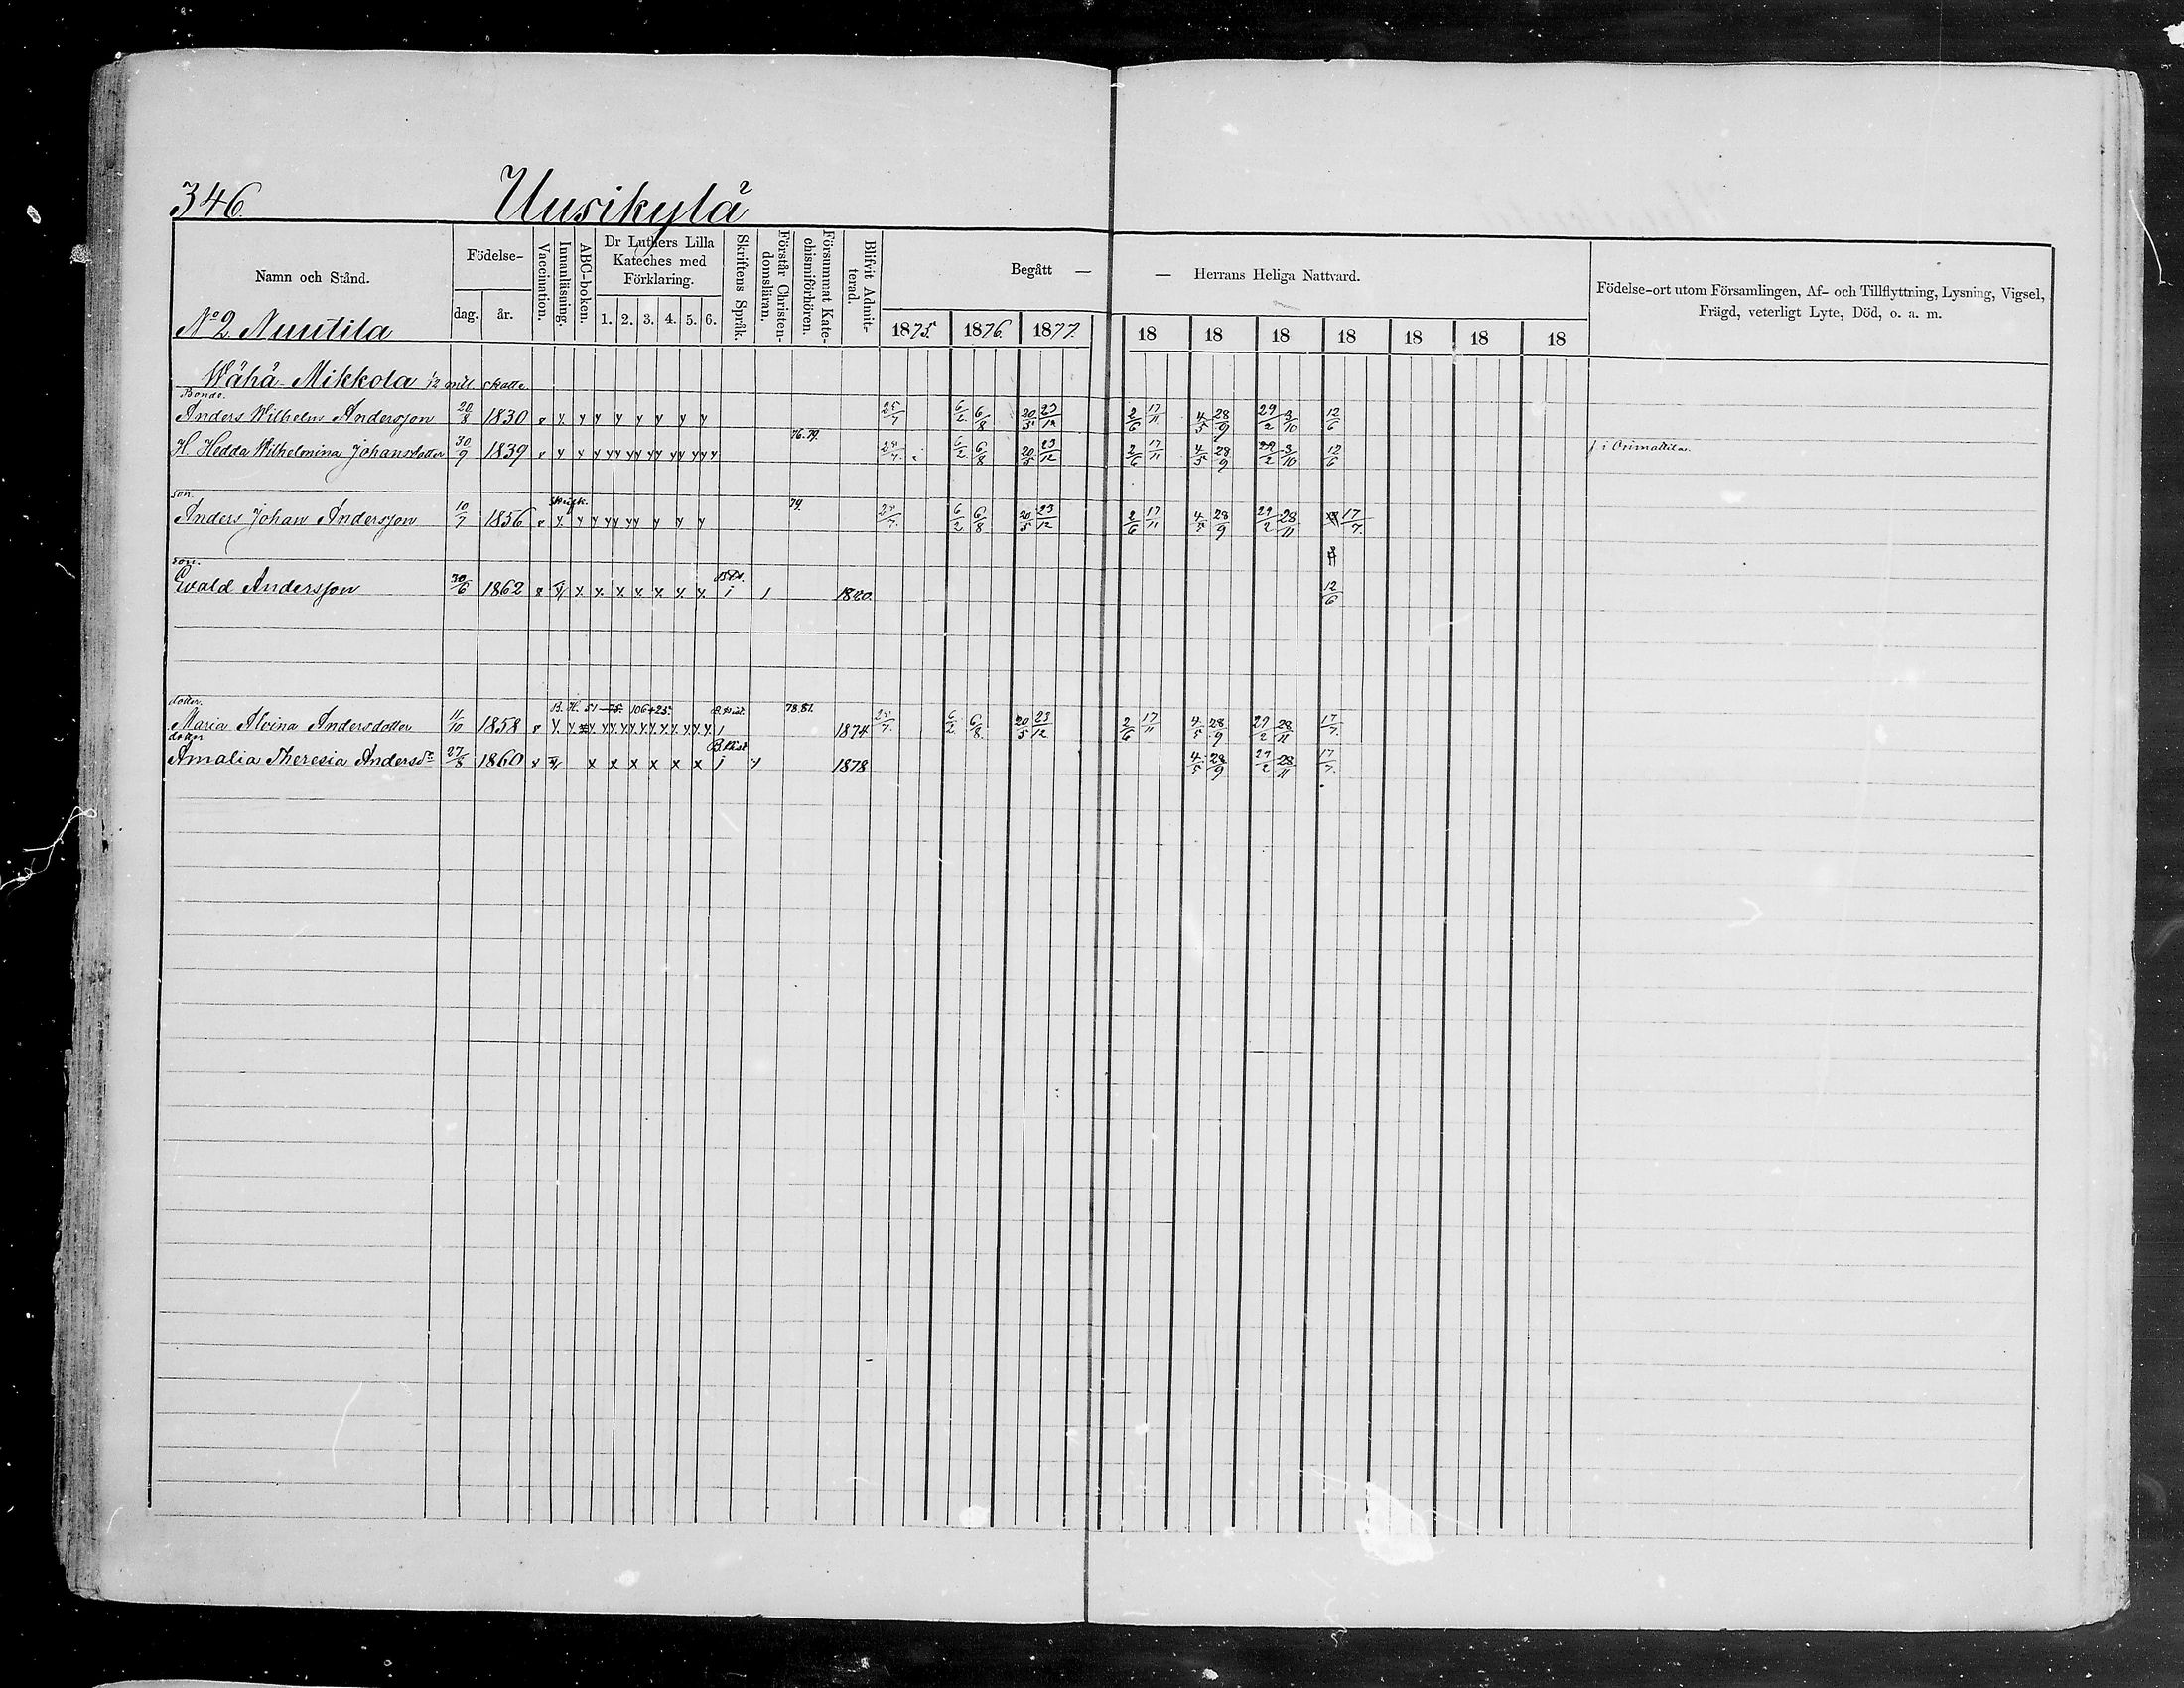 346. Uusikylä
Namn och Stånd.
Födelse-
dag. år.
Vaccination.
Innanläsning.
ABC-boken.
Dr Luthers Lilla
Kateches med
Förklaring.
1. 2. 3. 4. 5. 6.
Skriftens Språk.
Förstår Christen-
domsläran.
Försummat Kate-
chismiförhören.
Blifvit Admit-
terad.
Begått — — Herrans Heliga Nattvard.
1875. 1876. 1877. 18 18 18 18 18 18 18
Födelse-ort utom Församlingen, Af- och Tillflyttning, Lysning, Vigsel,
Frägd, veterligt Lyte, Död, o. a. m.
No 2 Nuutila
Wähä-Mikkola 1/2 mtl skatte
Bonde.
Anders Wilhelm Andersson 20/8 1830 v y y y y y y y y 25/7 6/2 6/8 20/5 23/12 2/6 17/11 4/5 28/9 29/2 3/10 12/6
76.79.
H. Hedda Wilhelmina Johansdotter 30/9 1839 v y y y yy yy yy yy yyy 6/2 6/8 20/5 23/12 2/6 17/11 4/5 28/9 29/2 3/10 12/6 f. i Orimattila.
son. 79.
Anders Johan Andersson 10/7 1856 v y y y yy yy y y y 6/2 6/8 20/5 23/12 2/6 17/11 4/5 28/9 29/2 28/11 17/7.
son.
Ewald Andersson 30/6 1862 x x x x x x x x 1880. 12/6
dotter. B. H. 51 75 106+25 78.81.
Maria Alvina Andersdotter 11/10 1858 1874 6/2 6/8 20/5 23/12 2/6 17/11 4/5 28/9 29/2 28/11 17/7.
dotter
Amalia Theresia Andersdr 27/8 1860 x x x x x x x 1878 4/5 28/9 29/2 28/11 17/7.